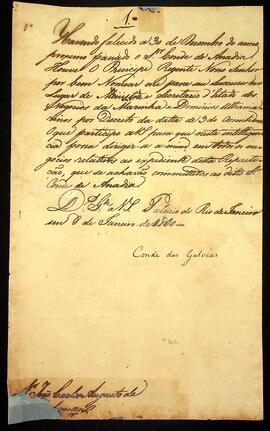 1.
1º
Havendo falecido a 30 de Dezembro do anno
proximo passado o Sr. Conde de Anadia
Houve O Principe Regente Nosso Senhor
por bem Nomear me para seu sucessor no
Lugar de Ministro, e Secretario d'Estado dos
Negocios da Marinha e Dominios Ultrama-
rinos por Decreto da data de 3 do corrente
O que participo a VS. para que nesta intelligen-
cia possa dirigir a mim em todos os ne-
gocios relativos ao expediente desta Reparti-
ção, que se achavão commettidos ao dito Sr.
Conde de Anadia
Ds. Ge. a VS. Palacio do Rio de Janeiro
em 6 de Janeiro de 1810
Conde das Galvêas
Sr. João Carlos Augusto de